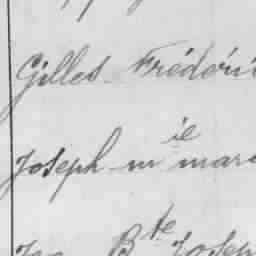 Gilles Frédéri
Joseph m ie mar
Bte Josep